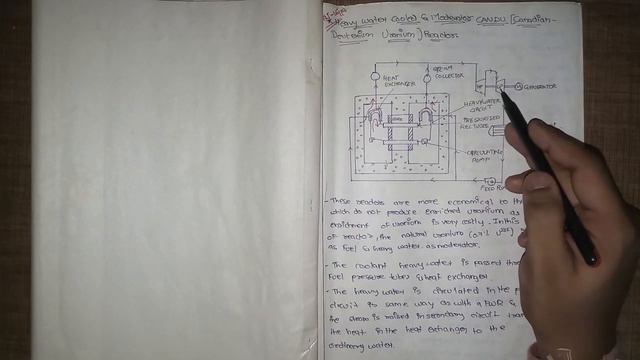 Heavy water Cooled & Moderator CANDU [Canadian-
Deuterium Uranium] Reactor:
HEAT
EXCHANGER
STEAM
COLLECTOR
GENERATOR
HEAVY WATER
CIRCUIT
PRESSURISED
FUEL TUBES
CIRCULATING
PUMP
FEED
- These reactors are more economical to
which do not produce enriched uranium as
enrichment of uranium is very costly. In this
of reactor, the natural uranium (0.7% U235)
as fuel & heavy water as moderator.
- The coolant heavy water is passed
fuel pressure tubes & heat exchanger
- The heavy water is circulated in the
circuit in same way as with a PWR &
the steam is raised in secondary circuit
the heat in the heat exchanger to the
ordinary water.